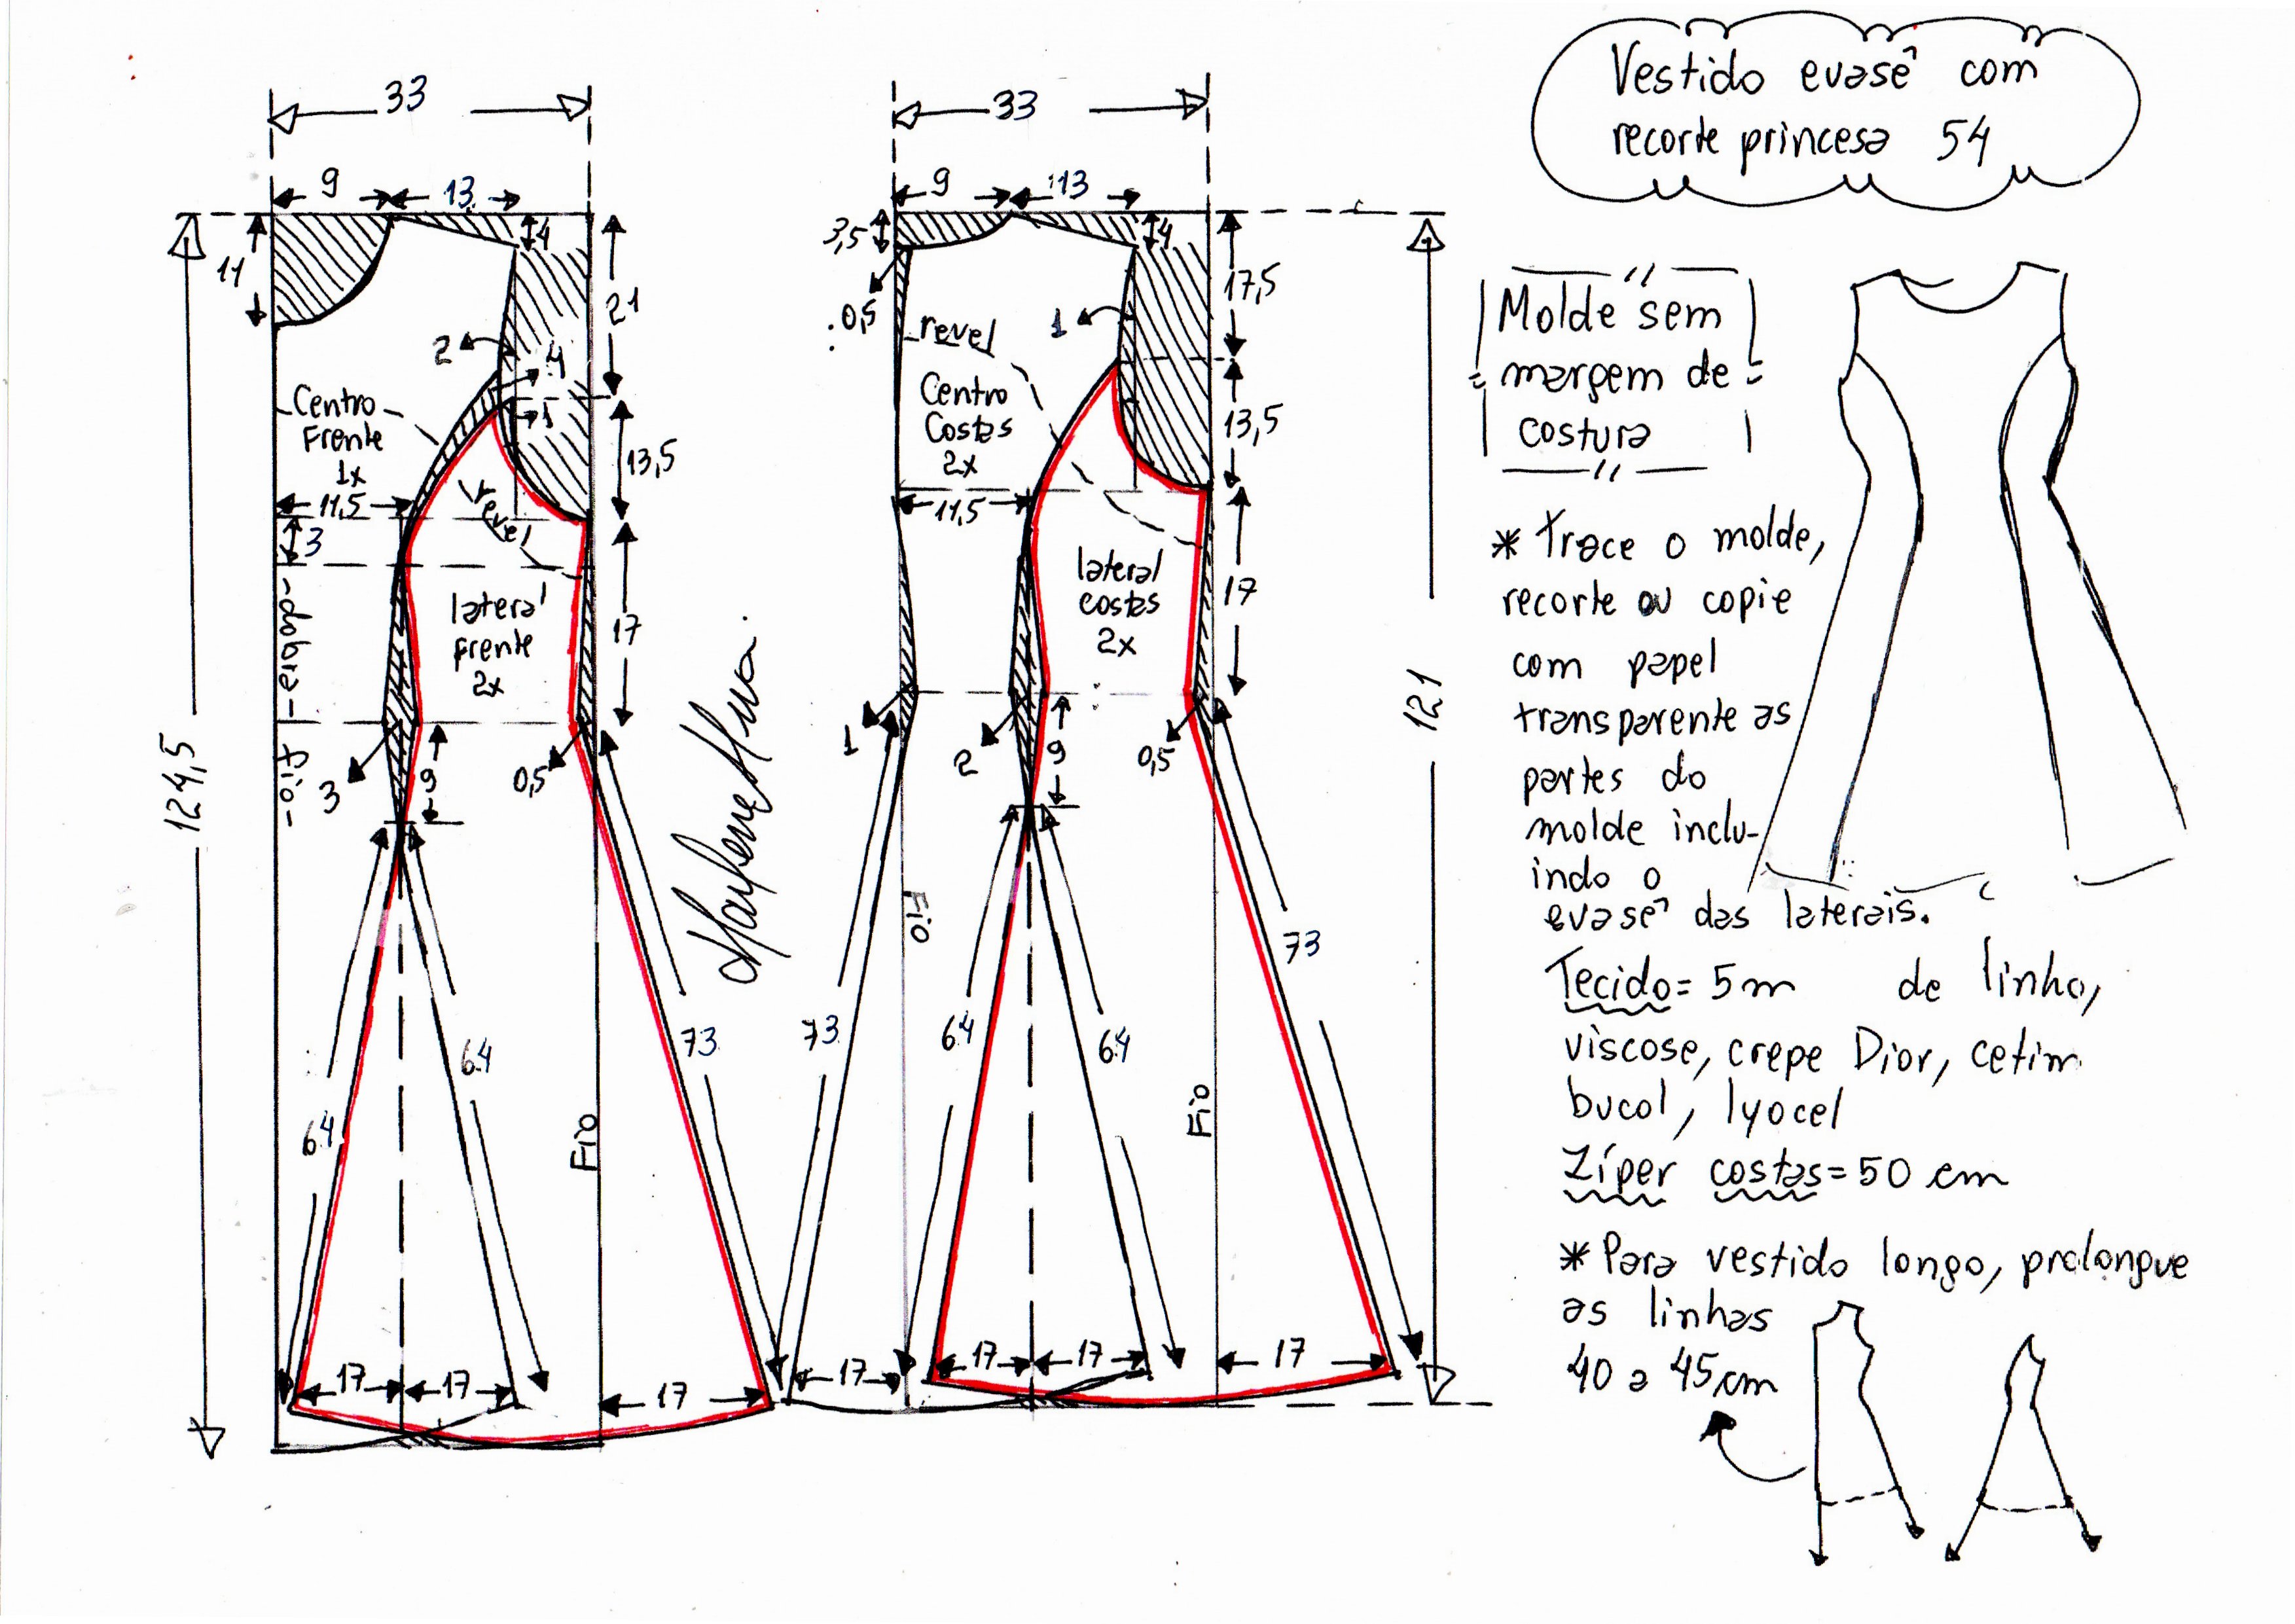 Vestido evasê com
recorte princesa 54
33
9
13
4
11
21
2
4
1
Centro
Frente
1x
13,5
11,5
3
revel
lateral
frente
2x
17
dobra
fio
124,5
3
9
0,5
64
64
73
Fio
17
17
17
33
9
13
3,5
4
0,5
17,5
revel
1
Centro
Costas
2x
13,5
11,5
lateral
costas
2x
17
1
2
9
0,5
Fio
73
64
64
73
Fio
17
17
17
17
121
Molde sem
margem de
costura
* Trace o molde,
recorte ou copie
com papel
transparente as
partes do
molde inclu-
indo o
evasê das laterais.
Tecido= 5m de linho,
viscose, crepe Dior, cetim
bucol, lyocel
Zíper costas=50 cm
* Para vestido longo, prolongue
as linhas
40 a 45cm